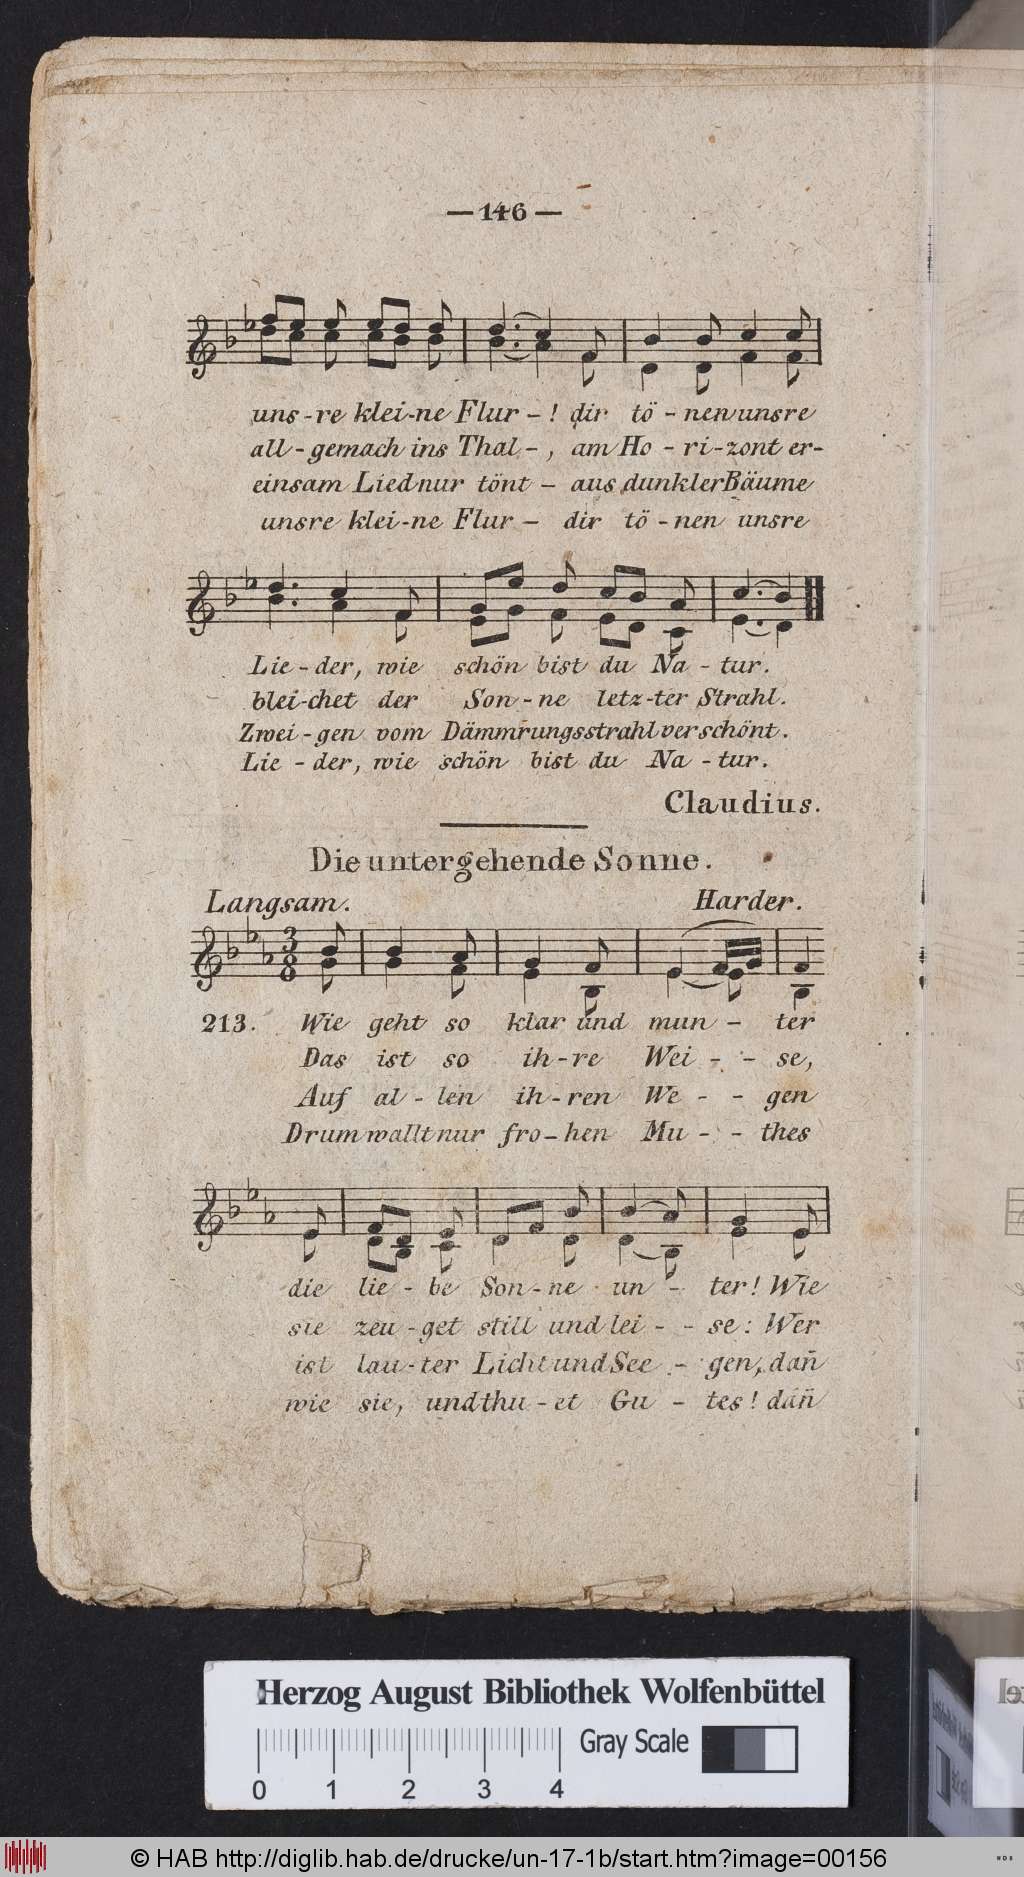 — 146 —
uns-re klei-ne Flur-! dir tö-nen unsre
all-gemach ins Thal-, am Ho-ri-zont er-
einsam Lied nur tönt - aus dunkler Bäume
unsre klei-ne Flur - dir tö-nen unsre
Lie-der, wie schön bist du Na-tur.
blei-chet der Son-ne letz-ter Strahl.
Zwei-gen vom Dämmrungsstrahl verschönt.
Lie-der, wie schön bist du Na-tur.
Claudius.
Die untergehende Sonne.
Langsam. Harder.
3/8
213. Wie geht so klar und mun-ter
Das ist so ih-re Wei--se,
Auf al-len ih-ren We--gen
Drum wallt nur fro-hen Mu--thes
die lie-be Son-ne un-ter! Wie
sie zeu-get still und lei--se: Wer
ist lau-ter Licht und See-gen, dan̄
wie sie, und thu-et Gu-tes! dan̄
Herzog August Bibliothek Wolfenbüttel
Gray Scale
0 1 2 3 4
© HAB http://diglib.hab.de/drucke/un-17-1b/start.htm?image=00156